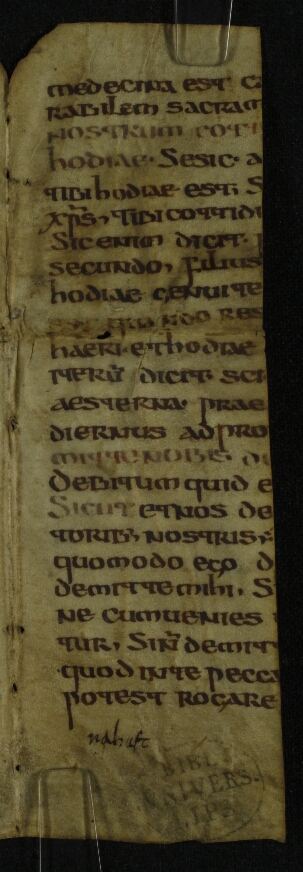 medecina est ca
rabilem sacram
nostrum coti
hodiae· Sesic· a
tibi hodiae· est; S
xp̄s, tibi cottidi
Sic enim dicit·
secundo, filius
hodiae genuite
quando res
haeri· et hodiae
iterū dicit· sci
aesterna· prae
diernus ad pro
mitte nobis di
debitum quid e
Sicut et nos de
toribꝰ nostris,
quomodo ego d
demitte mihi, S
ne cum uenies
tur, Sin̄ demit
quod in te pecca
potest rogare
BIBL.
UNIVERS.
LIPS.